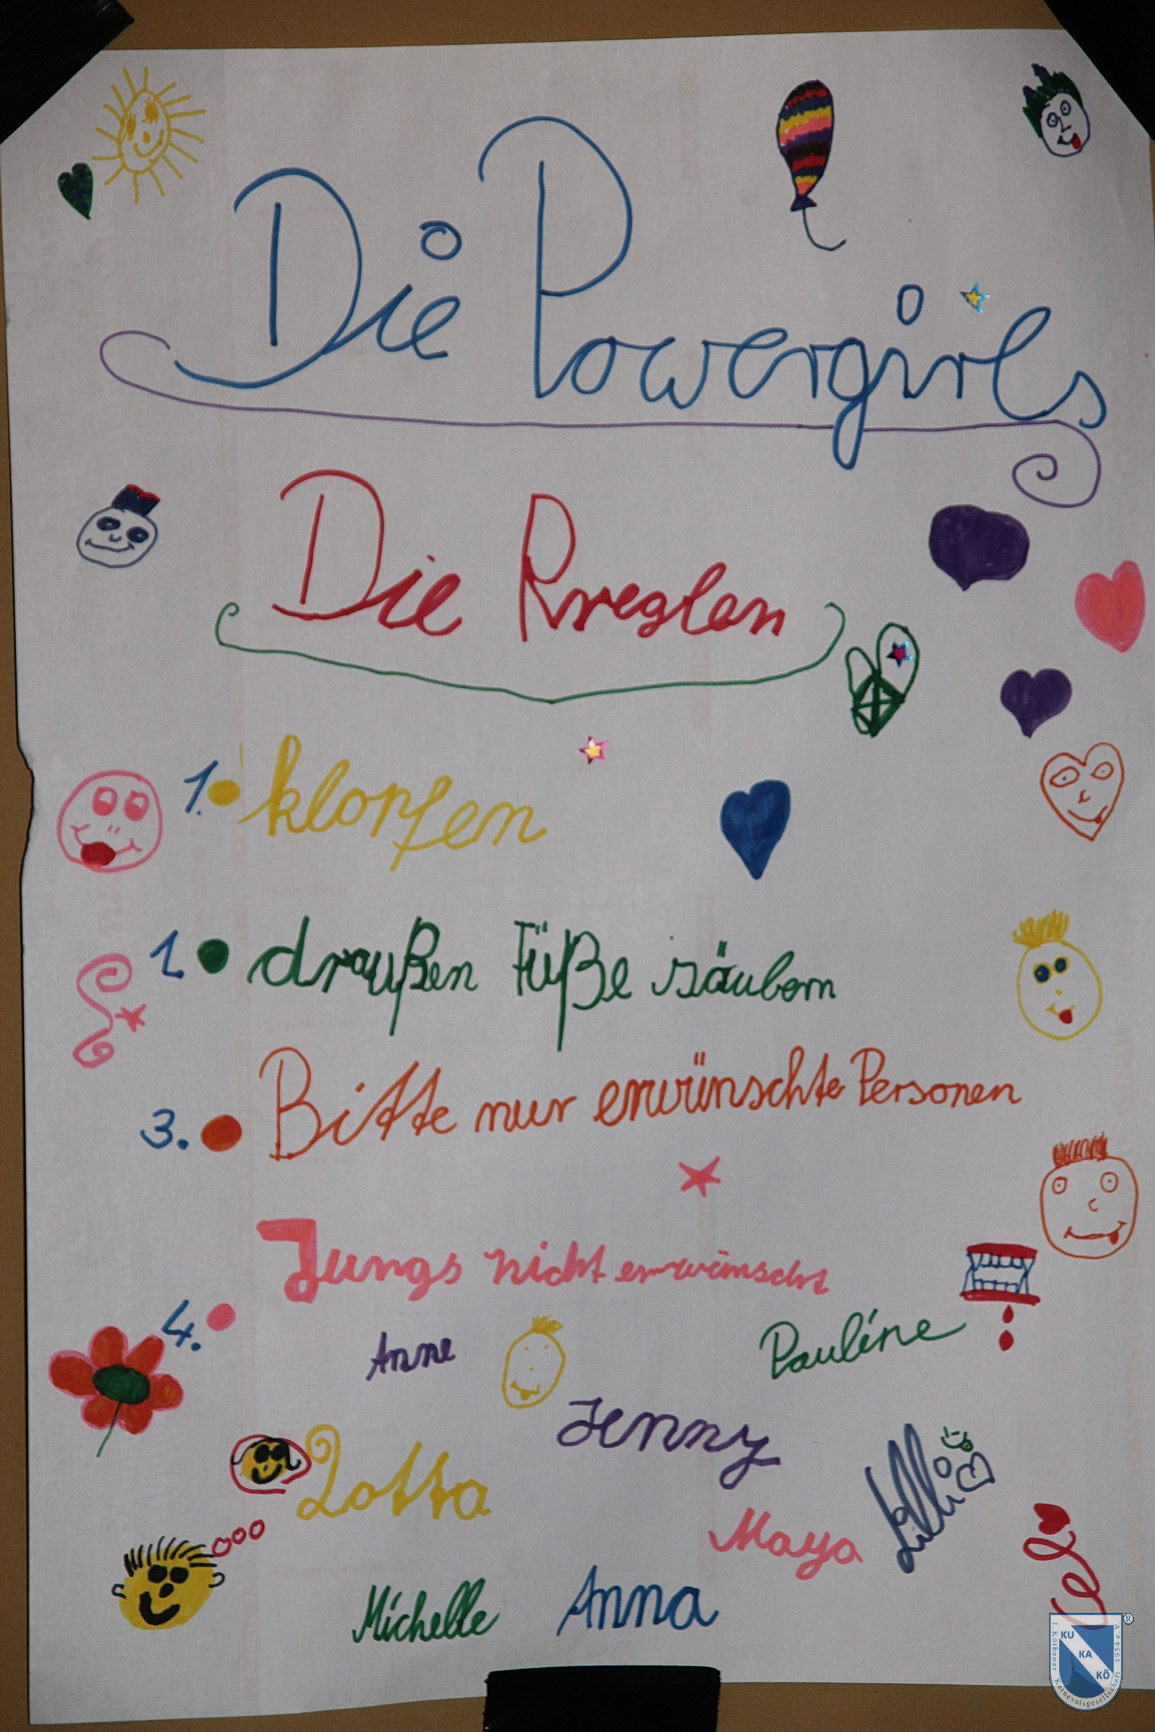 Die Powergirls
Die Rreglen
1. klopfen
1. draußen Füße säubern
3. Bitte nur erwünschte Personen
4. Jungs nicht erwünscht
Anne
Pauline
Jenny
Lotta
Lilli
Maya
Michelle
Anna
KU
KA
KÖ
1. Köthener Karnevalsgesellschaft 1954 e.V.